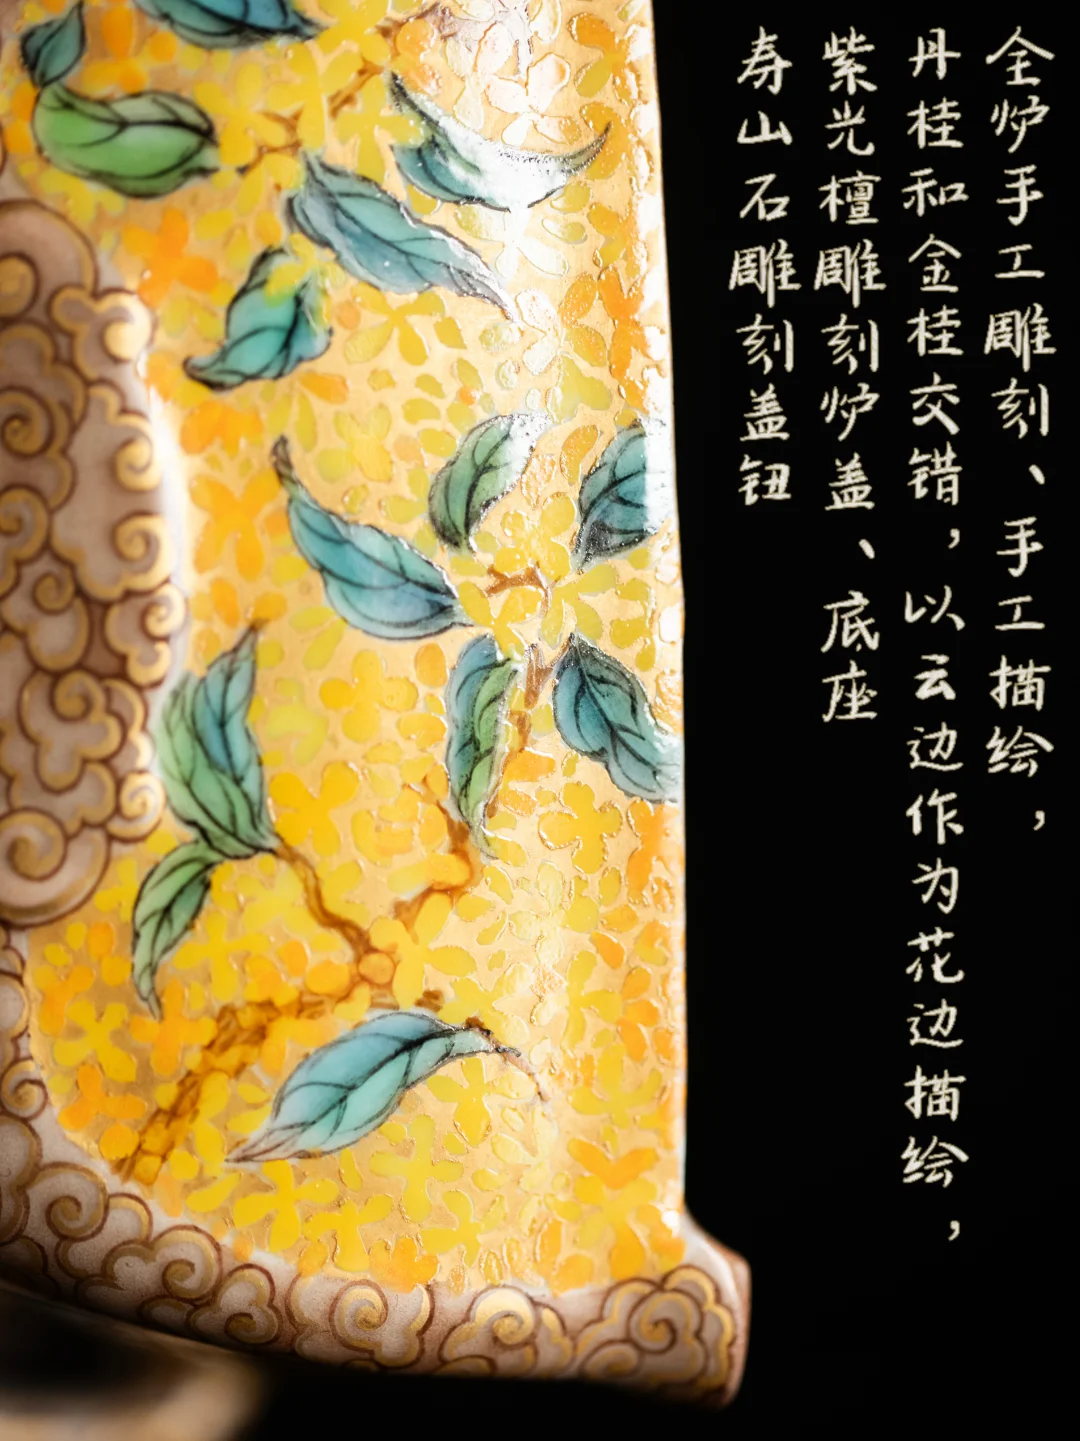 全炉手工雕刻、手工描绘，
丹桂和金桂交错，以云边作为花边描绘，
紫光檀雕刻炉盖、底座
寿山石雕刻盖钮